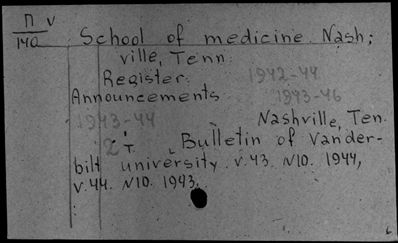 П v
140
School of medicine. Nash;
ville, Tenn.
Register. 1942-44
Announcements 1943-46
1943-44 Nashville, Ten.
2 т. Bulletin of Vander-
bilt university. v.43. N10. 1944,
v.44. N10. 1943.